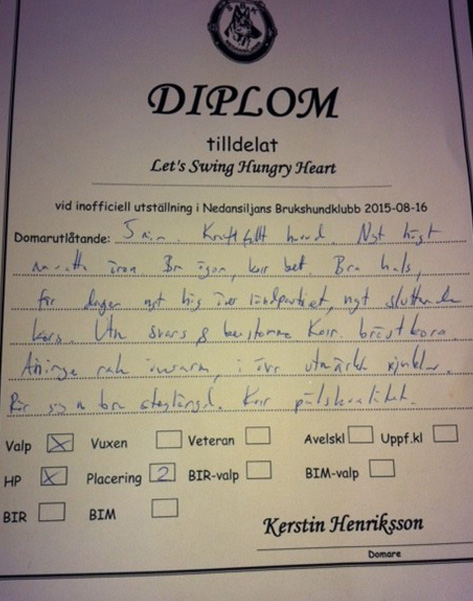 DIPLOM
tilldelat
Let's Swing Hungry Heart
vid inofficiell utställning i Nedansiljans Brukshundklubb 2015-08-16
Domarutlåtande: 5 mån. Kraftfullt huvud. Ngt högt
ansatta öron. Bra ögon, korr bet. Bra hals,
för dagen ngt hög över ländpartiet, ngt sluttande
kors. Utm svans & benstomme. Korr. bröstkorg.
Aningen rak överarm, i övr utmärkta vinklar.
Rör sig m bra steglängd. Korr pälskvalitet.
Valp X Vuxen Veteran Avelskl Uppf.kl
HP X Placering 2 BIR-valp BIM-valp
BIR BIM
Kerstin Henriksson
Domare